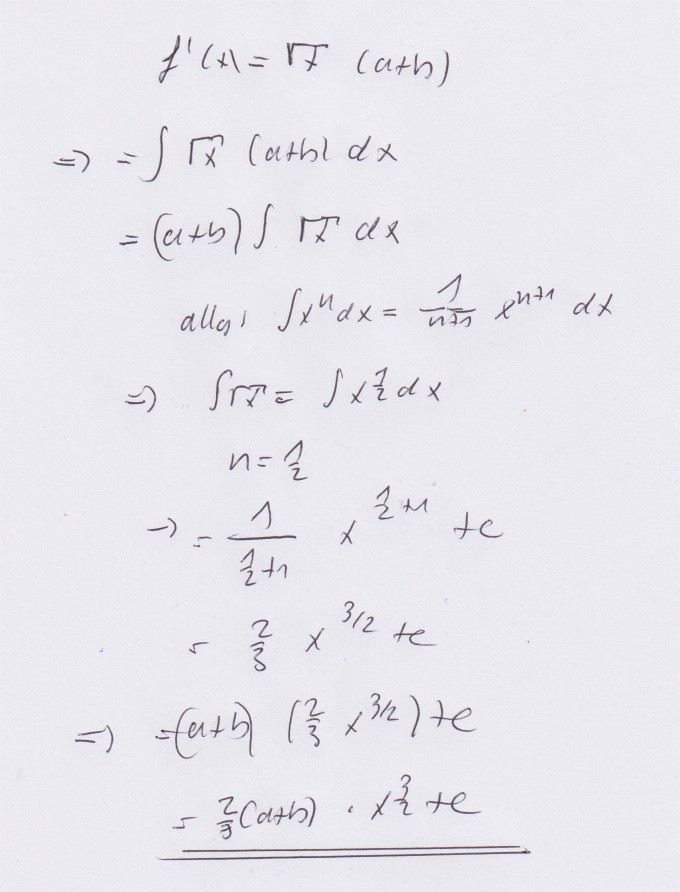 f'(x) = √x (a+b)
=> = ∫ √x (a+b) dx
= (a+b) ∫ √x dx
allg: ∫ xⁿ dx = 1/(n+1) xⁿ⁺¹ dx
=> ∫ √x = ∫ x^(1/2) dx
n = 1/2
-> = 1/(1/2+1) x^(1/2+1) + c
= 2/3 x^(3/2) + c
=> = (a+b) (2/3 x^(3/2)) + c
= 2/3 (a+b) · x^(3/2) + c